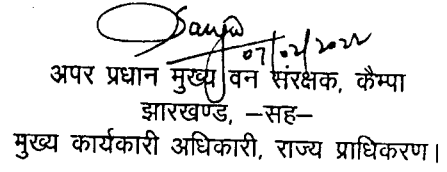 Sanjiv
07/02/2022
अपर प्रधान मुख्य वन संरक्षक, कैम्पा
झारखण्ड, –सह–
मुख्य कार्यकारी अधिकारी, राज्य प्राधिकरण।